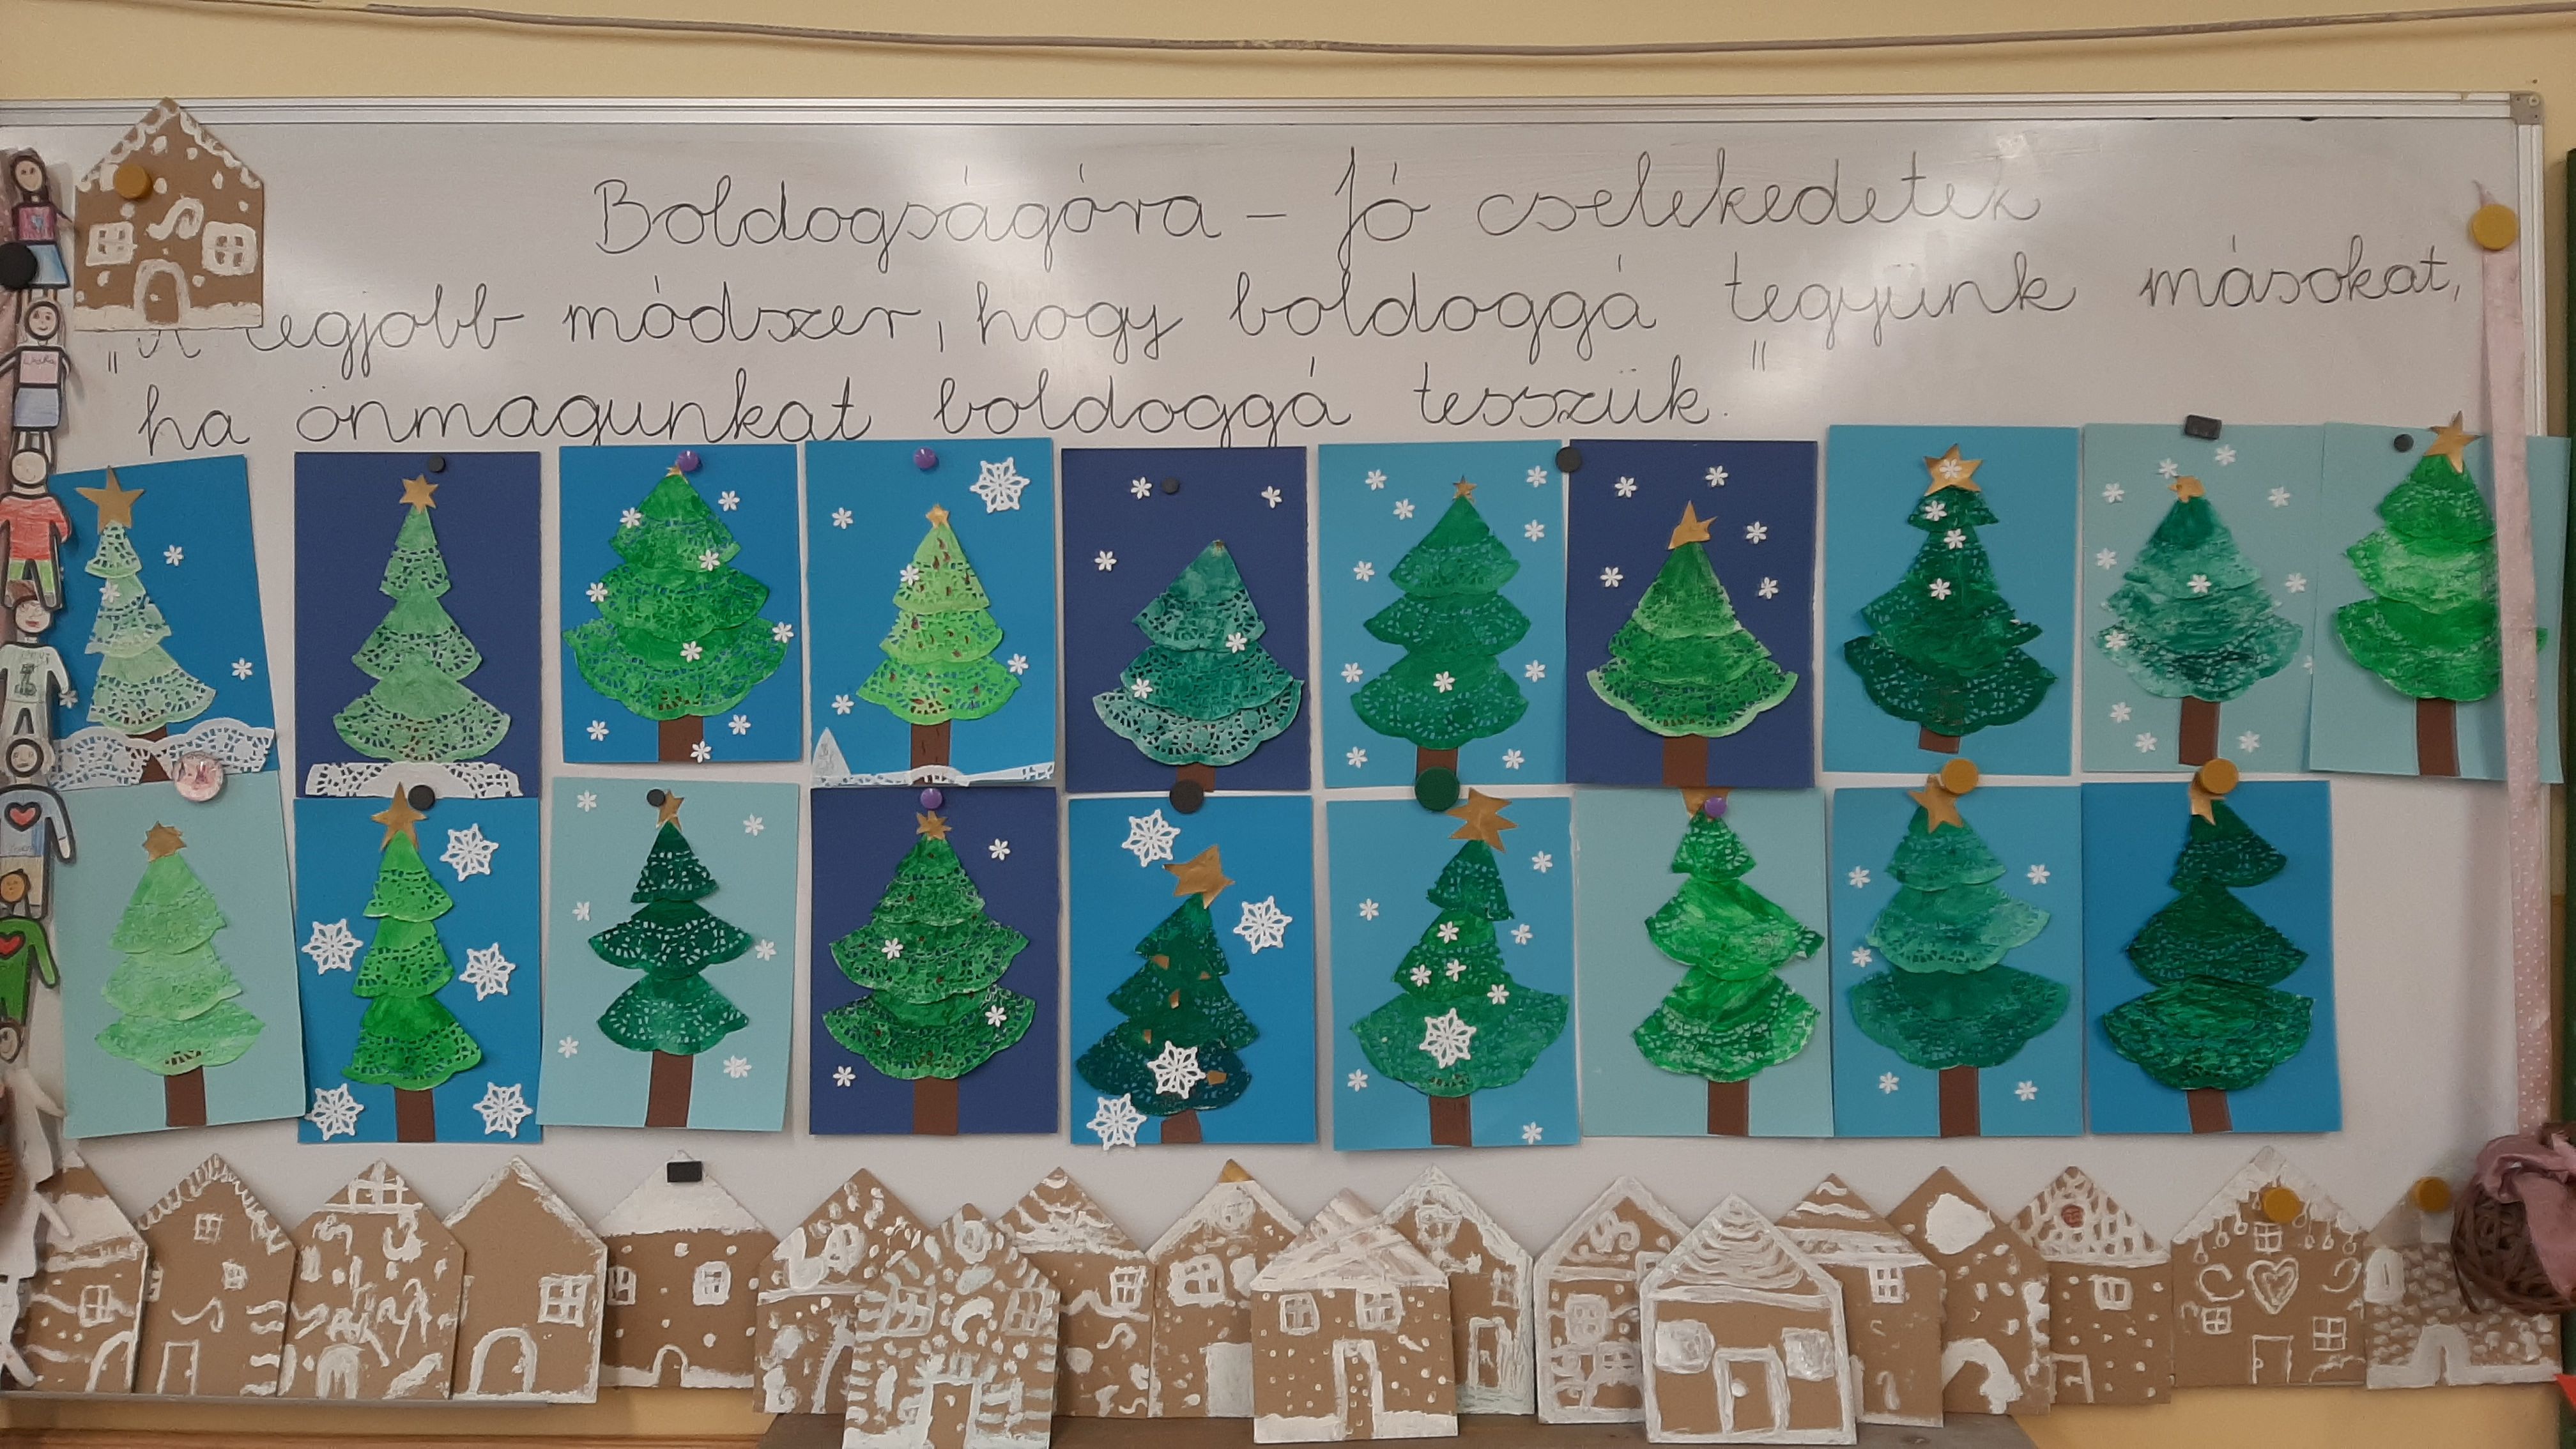 Boldogságóra – Jó cselekedetek
"A legjobb módszer, hogy boldoggá tegyünk másokat,
ha önmagunkat boldoggá tesszük."